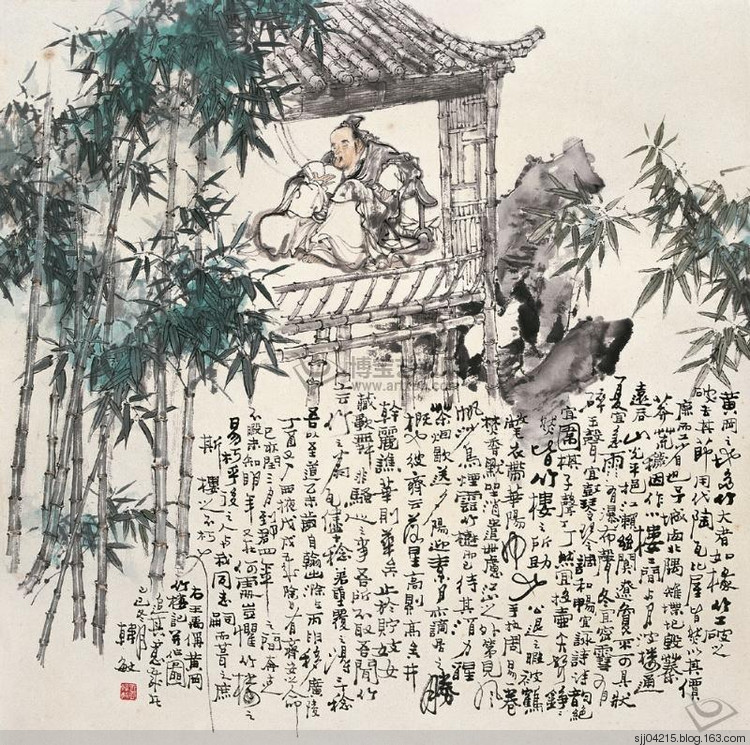 黄岡之地多竹大者如椽竹工破之
刳去其節用代陶瓦比屋皆然以其價
廉而工省也子城西北隅雉堞圮毁蓁
莽荒穢因作小樓二間與月波樓通
遠吞山光平挹江瀨幽闃遼夐不可具狀
夏宜急雨有瀑布聲冬宜密雪有
碎玉聲宜鼓琴琴調和暢宜詠詩詩韵清絶
宜圍棋子聲丁丁然宜投壺矢聲錚錚
然皆竹樓之所助也公退之暇被鶴
氅衣戴華陽巾手執周易一卷
焚香默坐消遣世慮江山之外第見風
帆沙鳥煙雲竹樹而已待其酒力醒
茶烟歇送夕陽迎素月亦謫居之勝
概也彼齊雲落星高則高矣井
幹麗譙華則華矣止於貯妓女
藏歌舞非騷人之事吾所不取吾聞竹
工云竹之為瓦僅十稔若重覆之得二十稔
吾以至道乙未歲自翰林出滁上丙申移廣陵
丁酉又入西掖戊戌歲除日有齊安之命
己亥閏三月到郡四年之間奔走
不暇未知明年又在何處豈懼竹樓之
易朽乎後之人與我同志嗣而葺之庶
斯樓之不朽也
右王禹偁黄岡
竹樓記
韓敏
sjj04215.blog.163.com